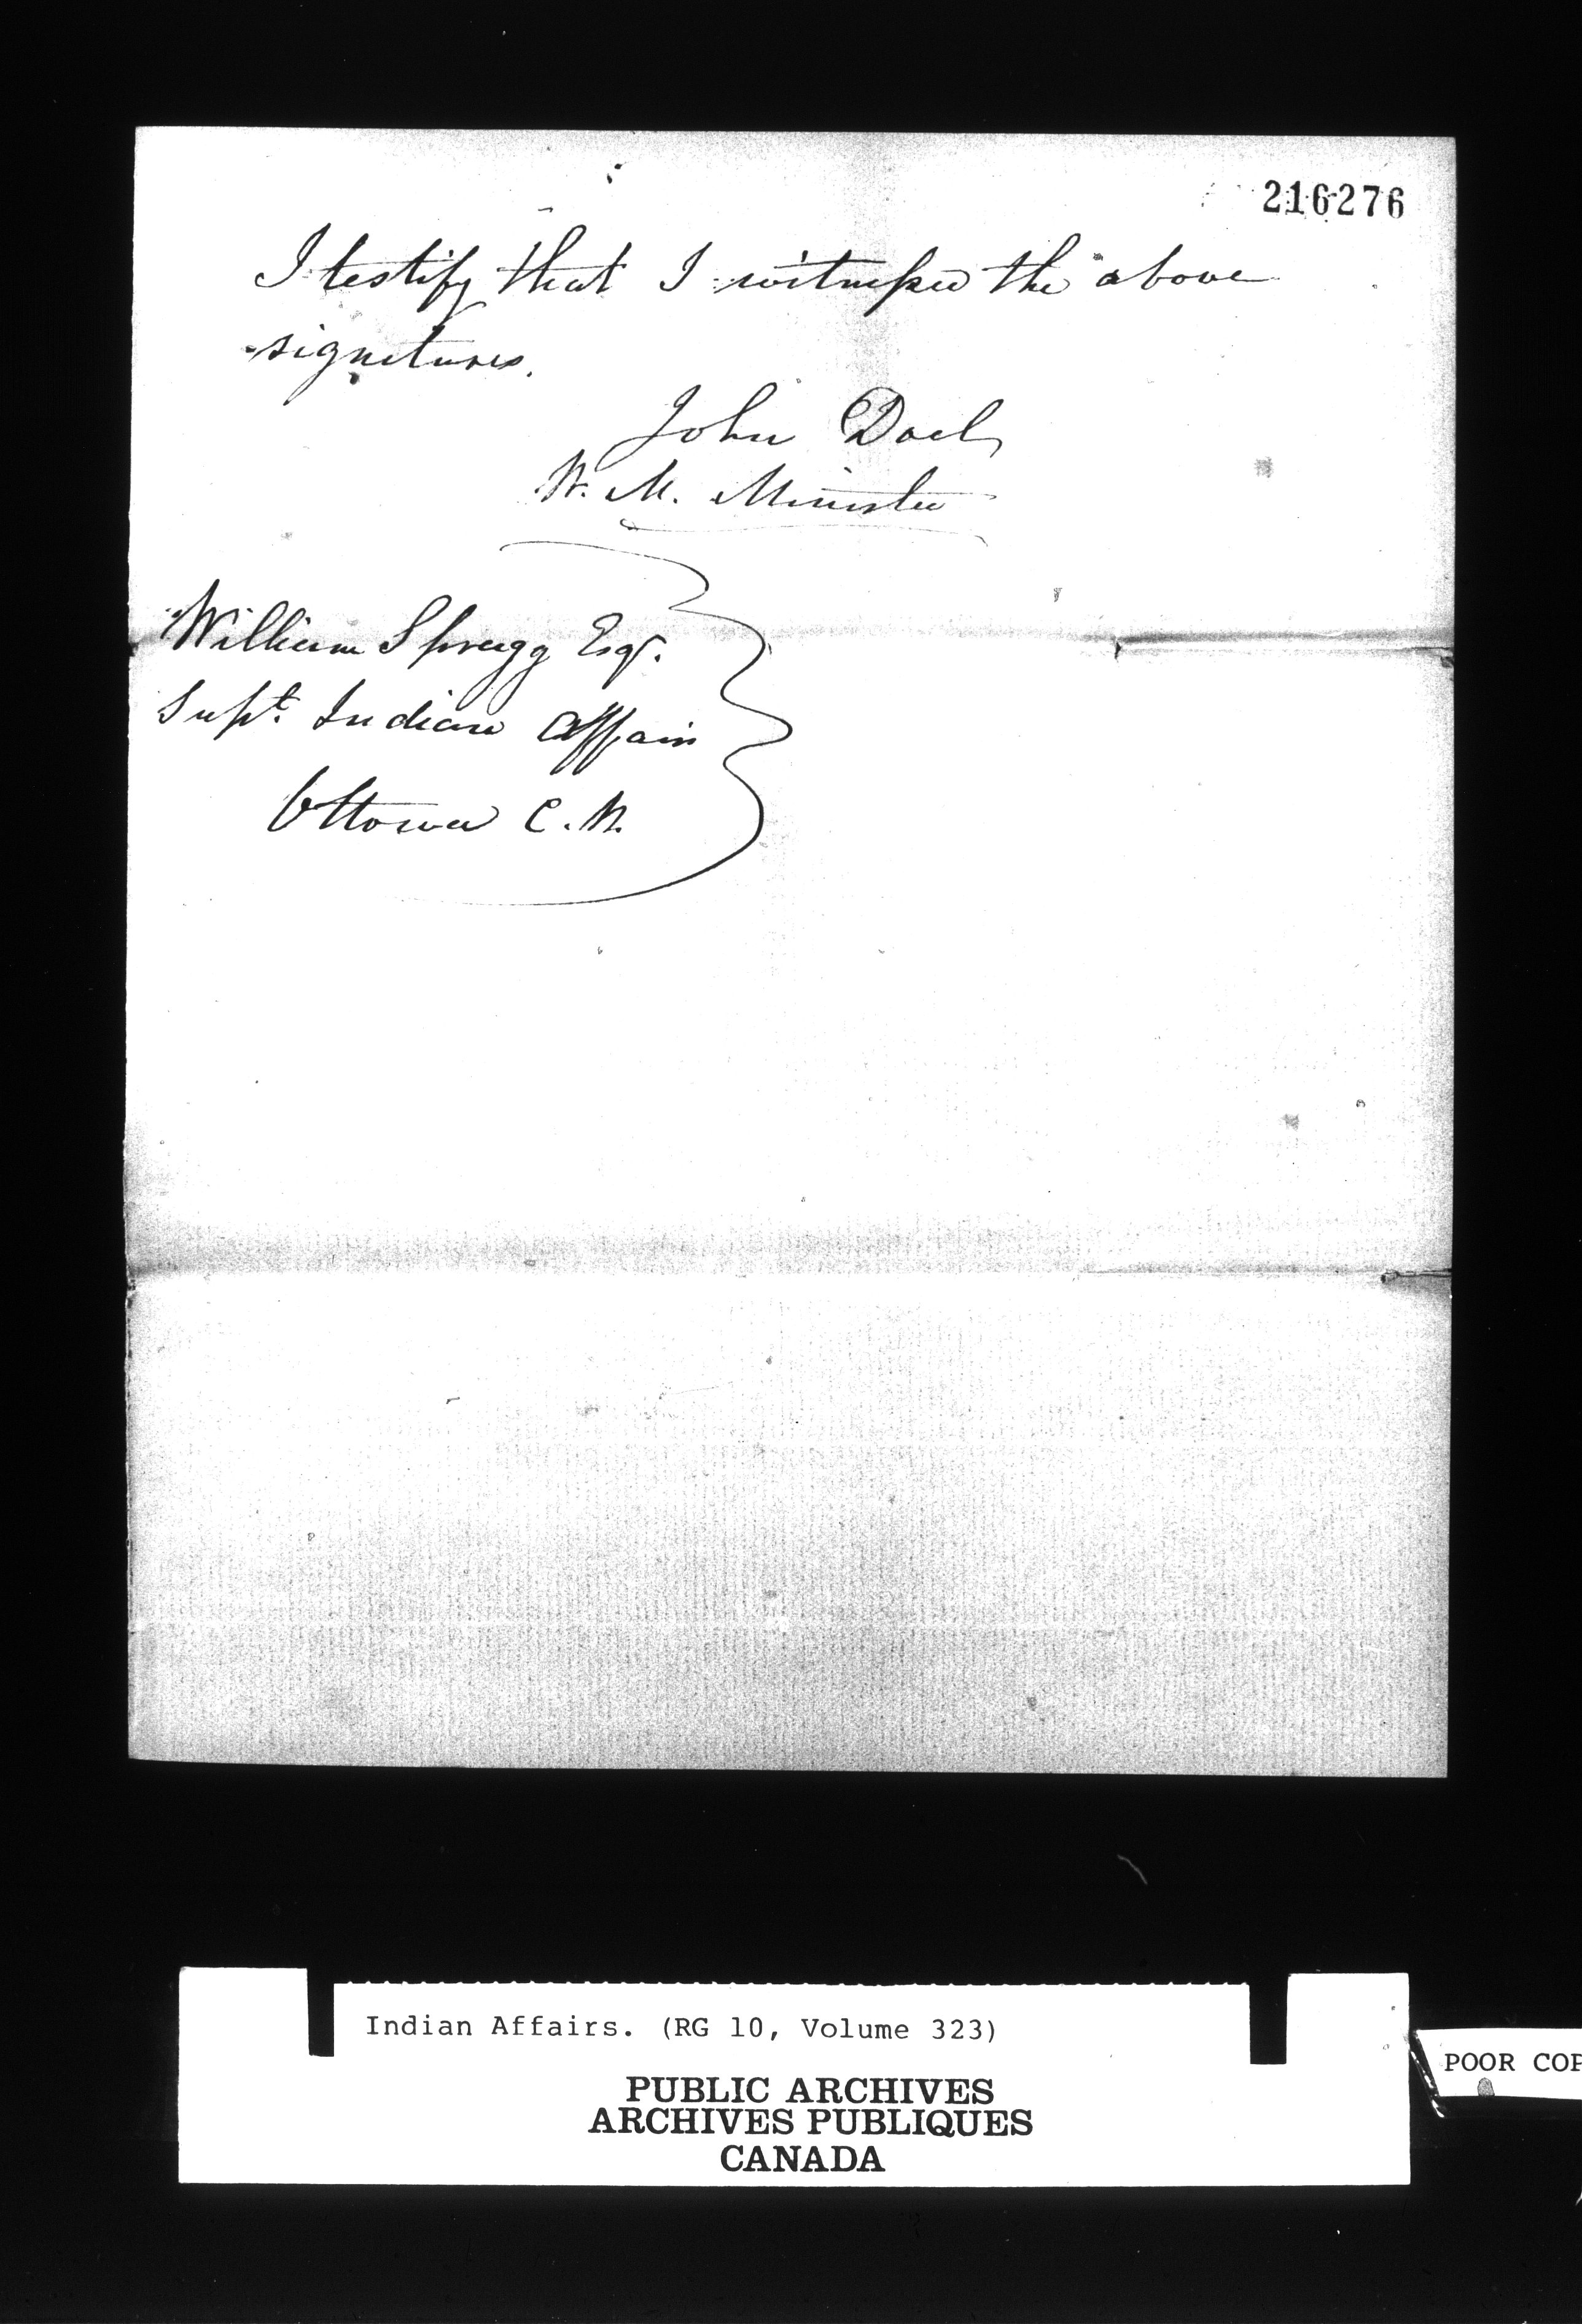 216276
I testify that I witnessed the above
signatures.
John Doel
W. M. Minister
William Spragg Esqr.
Supt. Indian Affairs
Ottowa C. W.
Indian Affairs. (RG 10, Volume 323)
PUBLIC ARCHIVES
ARCHIVES PUBLIQUES
CANADA
POOR COP